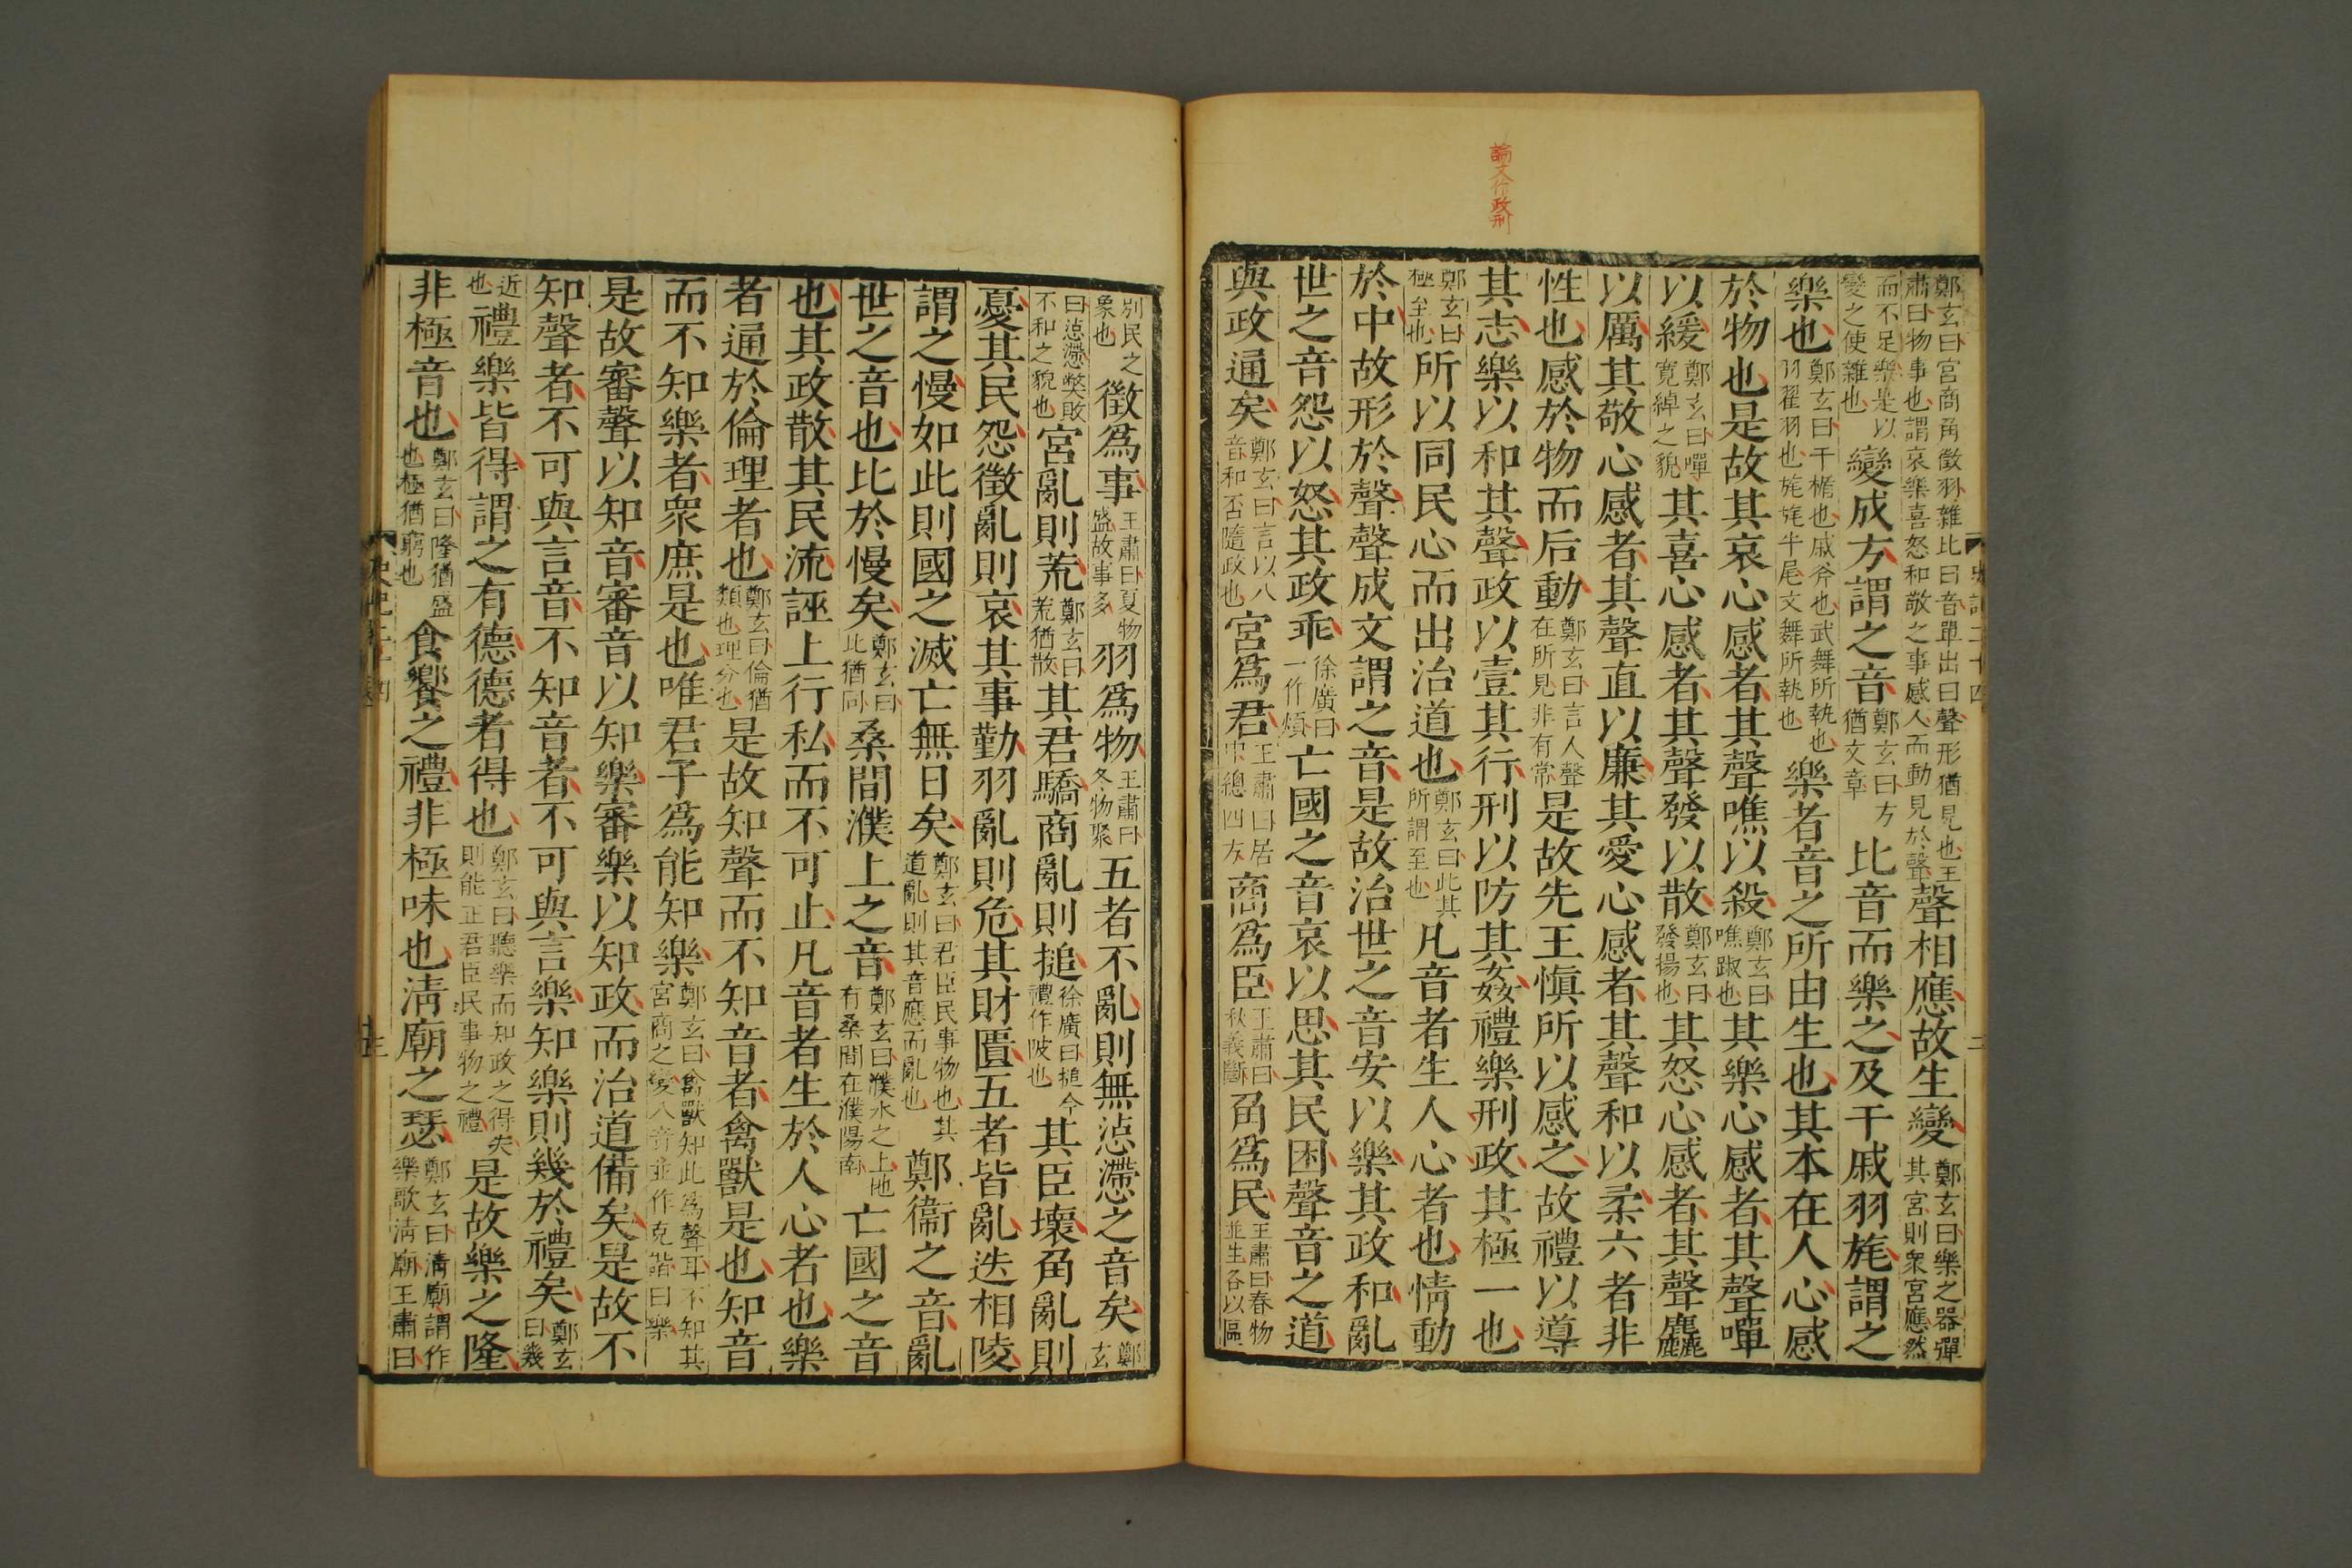 論文行政刑
鄭玄曰宮商角徵羽雜比曰音單出曰聲形猶見也王肅曰物事也謂哀樂喜怒和敬之事感人而動見於聲聲相應故生變鄭玄曰樂之器彈其宮則衆宮應然
而不足樂是以變之使雜也變成方謂之音鄭玄曰方猶文章比音而樂之及干戚羽旄謂之
樂也鄭玄曰干楯也戚斧也武舞所執也羽翟羽也旄旄牛尾文舞所執也樂者音之所由生也其本在人心感
於物也是故其哀心感者其聲噍以殺鄭玄曰噍踧也其樂心感者其聲嘽
以緩鄭玄曰嘽寛綽之貌其喜心感者其聲發以散鄭玄曰發揚也其怒心感者其聲麤
以厲其敬心感者其聲直以廉其愛心感者其聲和以柔六者非
性也感於物而后動鄭玄曰言人聲在所見非有常是故先王愼所以感之故禮以導
其志樂以和其聲政以壹其行刑以防其姦禮樂刑政其極一也
鄭玄曰極至也所以同民心而出治道也鄭玄曰此其所謂至也凡音者生人心者也情動
於中故形於聲聲成文謂之音是故治世之音安以樂其政和亂
世之音怨以怒其政乖徐廣曰一作煩亡國之音哀以思其民困聲音之道
與政通矣鄭玄曰言以八音和否隨政也宮爲君王肅曰居中總四方商爲臣王肅曰秋義斷角爲民王肅曰春物並生各以區
別民之象也徵爲事王肅曰夏物盛故事多羽爲物王肅曰冬物聚五者不亂則無惉懘之音矣鄭玄
曰惉懘獘敗不和之貌也宮亂則荒鄭玄曰荒猶散其君驕商亂則搥徐廣曰搥今禮作陂也其臣壞角亂則
憂其民怨徵亂則哀其事勤羽亂則危其財匱五者皆亂迭相陵
謂之慢如此則國之滅亡無日矣鄭玄曰君臣民事物也其道亂則其音應而亂也鄭衞之音亂
世之音也比於慢矣鄭玄曰此猶同桑間濮上之音鄭玄曰濮水之上地有桑間在濮陽南亡國之音
也其政散其民流誣上行私而不可止凡音者生於人心者也樂
者通於倫理者也鄭玄曰倫猶類也理分也是故知聲而不知音者禽獸是也知音
而不知樂者衆庶是也唯君子爲能知樂鄭玄曰禽獸知此爲聲耳不知其宮商之變八音並作克諧曰樂
是故審聲以知音審音以知樂審樂以知政而治道備矣是故不
知聲者不可與言音不知音者不可與言樂知樂則幾於禮矣鄭玄曰幾
近也禮樂皆得謂之有德德者得也鄭玄曰聽樂而知政之得失則能正君臣民事物之禮是故樂之隆
非極音也鄭玄曰隆猶盛也極猶窮也食饗之禮非極味也淸廟之瑟鄭玄曰淸廟謂作樂歌淸廟王肅曰